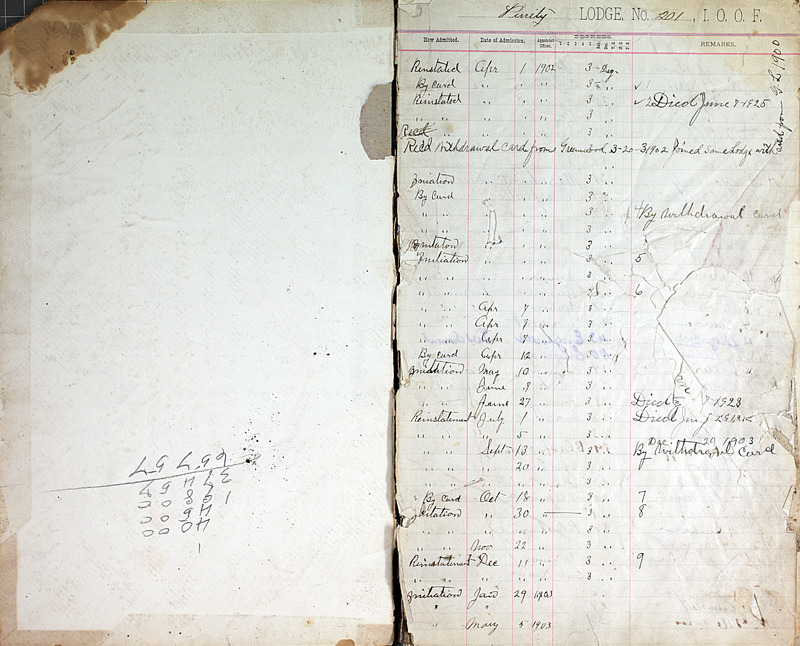 Purity LODGE, No. 201, I. O. O. F.
How Admitted. Date of Admission. Appointed Officer. DEGREES. REMARKS.
Reinstated Apr 1 1902 3 Deg.
By Card " " " 3
Reinstated " " " 3 Died June 7-1925
" " " " " 3
Rec'd " " 3
Rec'd Withdrawal Card from Greenwood 3-20-1902 Joined Same Lodge with
card from G.L. 1900
Initiation " " " 3
By Card " " " 3
" " " " " 3 4 By Withdrawal Card
" " " " " 3
Initiation " " " 3
Initiation " " " 3 5
" " " " " 3
" " " " " 3 6
" " Apr 7 " 3
" " Apr 7 " 3
" " Apr 7 " 3
By Card Apr 12 " 3
Initiation May 10 " 3
" " June 9 " 3
" " June 27 " 3 Died 7-1923
Reinstatement July 1 " 3 Died
" " " 5 " 3 Dec 29 1903
" " Sept 13 " 3 By Withdrawal Card
" " " 20 " 3
" " " " " 3
By Card Oct 18 " 3 7
Initiation " 30 " 3 8
" " " " " 3
" " Nov 22 " 3
Reinstatement Dec 11 " 3 9
" " " " " 3
Initiation Jan 29 1903
" "
" Mary 5 1903
1
40 00
45 00
198 00
374 57
657 57